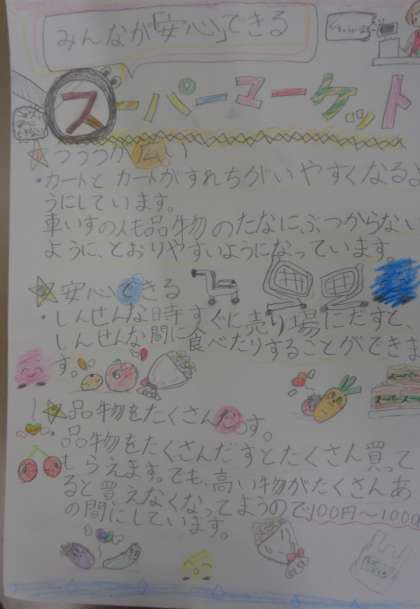 みんなが「安心」できる
スーパーマーケット
つうろが広い
・カートとカートがすれちがいやすくなるよ
うにしています。
車いすの人も品物のたなにぶつからない
ように、とおりやすいようになっています。
安心できる
・しんせんな時すぐに売り場にだすと
しんせんな間に食べたりすることができま
す。
品物をたくさんだす。
・品物をたくさんだすとたくさん買って
もらえます。でも、高い物がたくさんあ
ると買えなくなってしまうので100円〜1000
の間にしています。